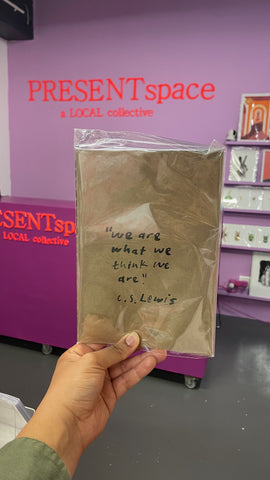 PRESENTspace
a LOCAL collective
"we are
what we
think we
are."
C.S. Lewis
ESENTspa
LOCAL collective